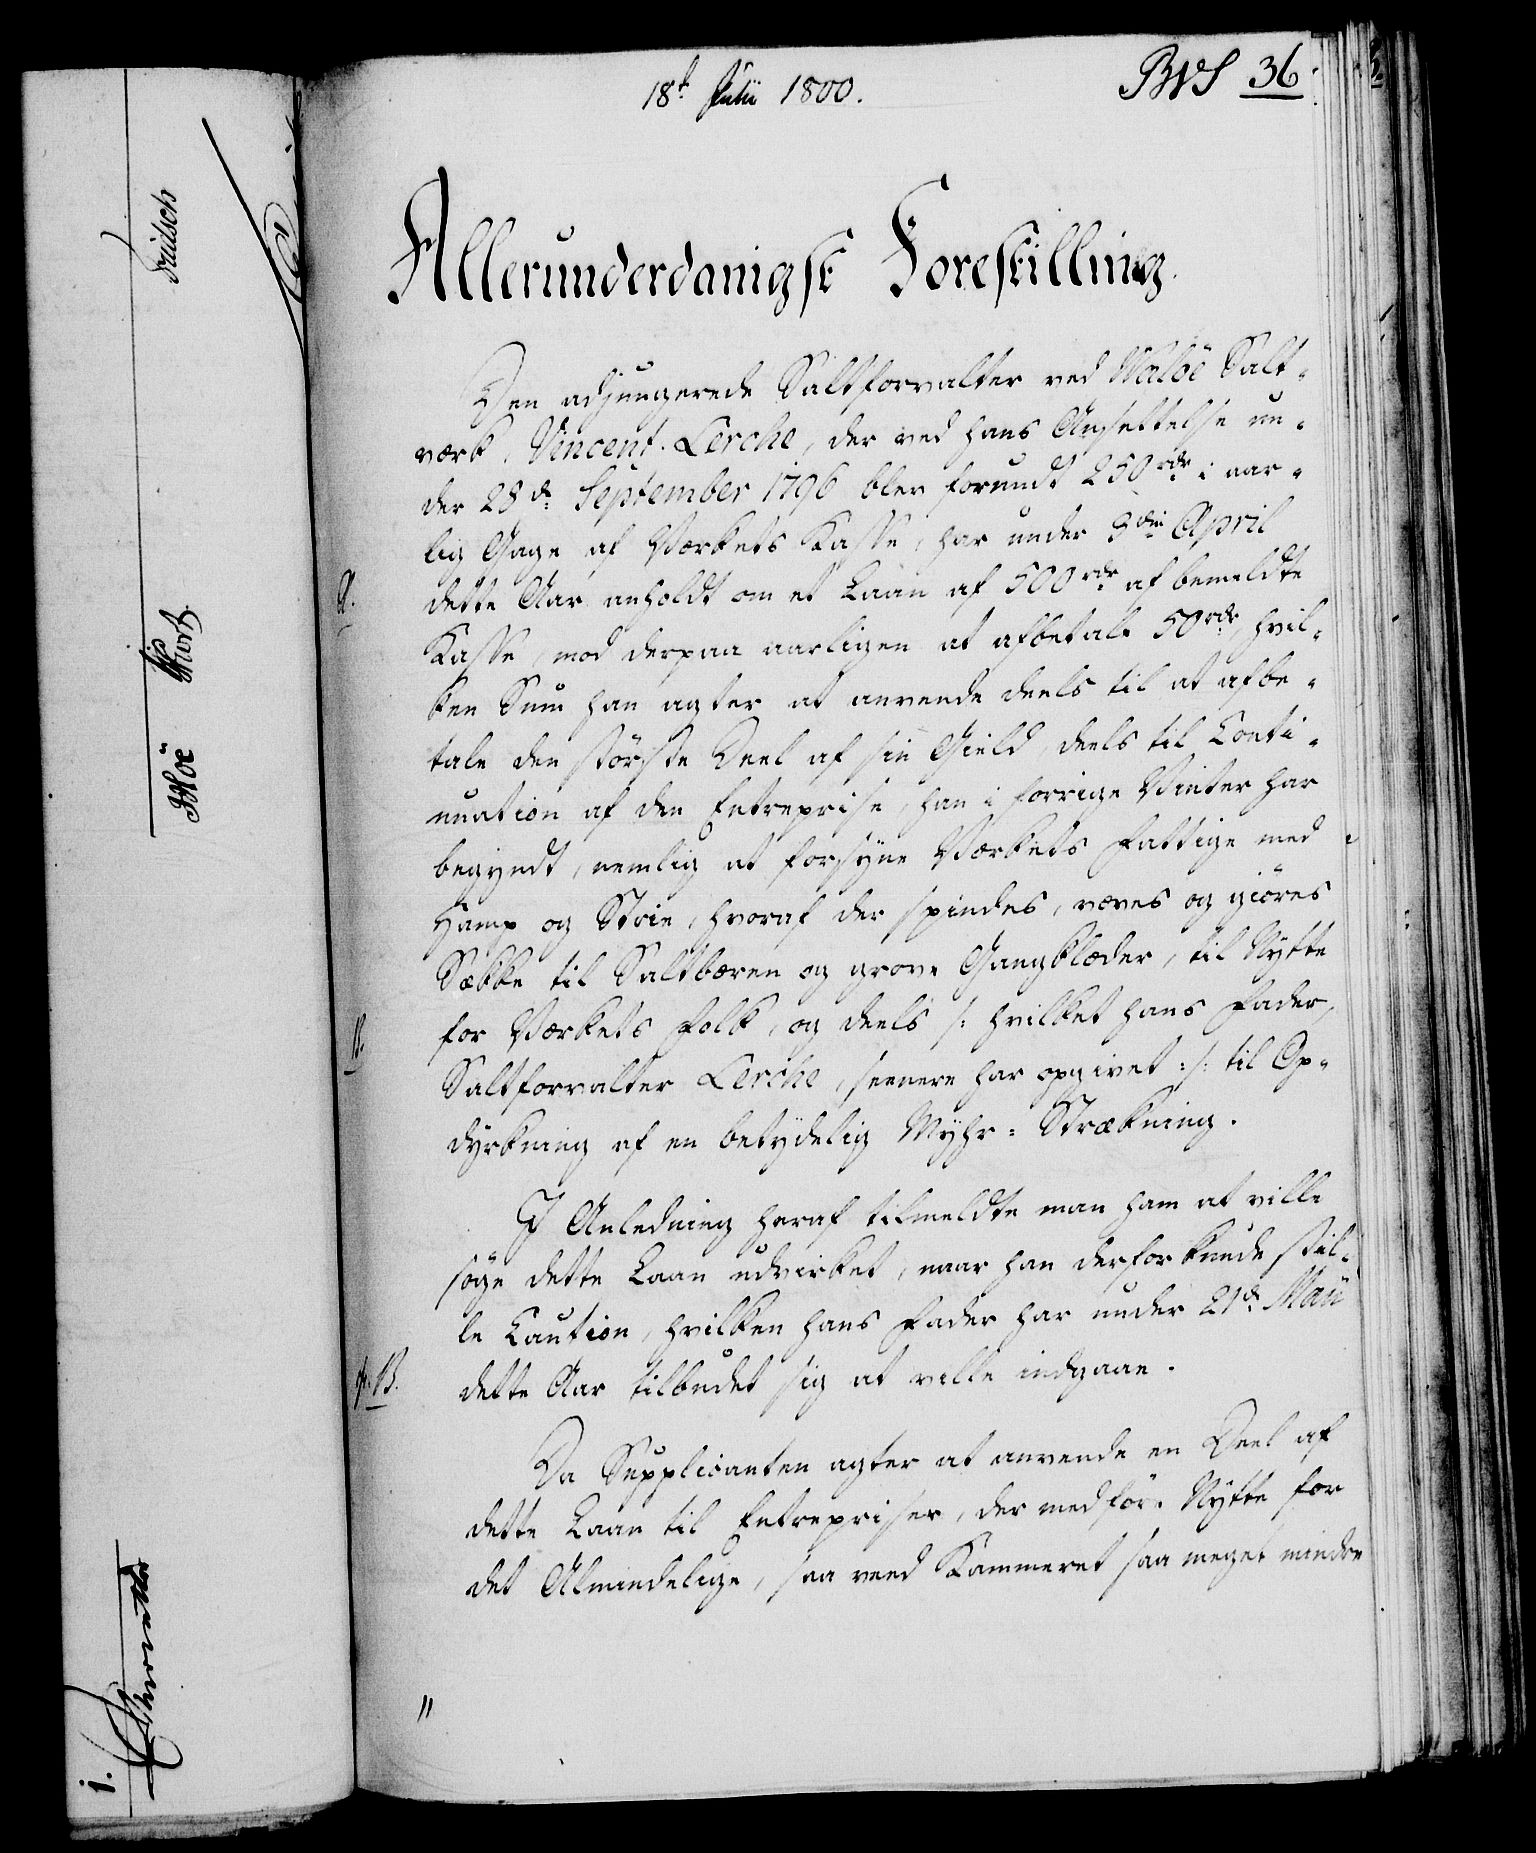 18d Julii 1800.
BWS 36
Allerunderdanigst Forestilling.
Den adjungerede Saltforvalter ved Walöe Salt-
værk, Vincent Lerche, der ved hans Ansættelse un-
der 28de September 1796 blev forundt 250 rdr i aar-
lig Gage af Værkets Kasse, har under 3die April
A.
dette Aar anholdt om et Laan af 500 rdr af bemeldte
Kasse, mod derpaa aarligen at afbetale 50 rdr, hvil-
ken Sum han agter at anvende deels til at afbe-
tale den störste Deel af sin Gield deels til Conti-
nuation af den Entreprise, han i forrige Vinter har
begyndt, nemlig at forsyne Værkets Fattige med
Hamp og Strie, hvoraf der spindes, væves og giöres
Sække til Saltbæren og grove Gangklæder, til Nytte
for Værkets Folk, og deels /: hvilket hans Fader,
B.
Saltforvalter Lerche, senere har opgivet :/ til Op-
dyrkning af en betydelig Myhr-Strækning.
I Anledning heraf tilmeldte man ham at ville
söge dette Laan udvirket, naar han derfor kunde stil-
le Caution, hvilken hans Fader har under 21de Maii
cfr. B.
dette Aar tilbudet sig at ville indgaae.
Da Supplicanten agter at anvende en Deel af
dette Laan til Entrepriser, der medföre Nytte for
det Almindelige, saa veed Kammeret saa meget mindre
Fritsch
Wivet
JHoë
i.